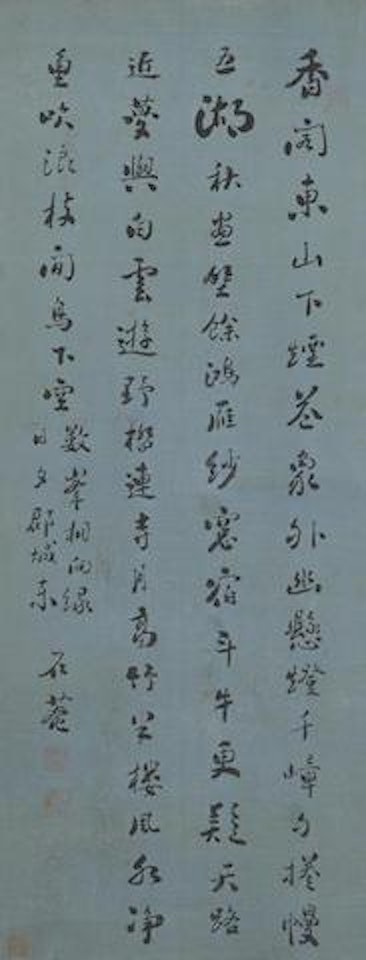 香閣東山下煙花象外幽懸燈千嶂夕捲幔
五湖秋畫壁餘鴻雁紗窓宿斗牛更疑天路
近夢與白雲遊野橋連寺月高竹半樓風水淨
魚吹浪枝閒鳥下空
數峯相向緑
日夕郡城東
石菴